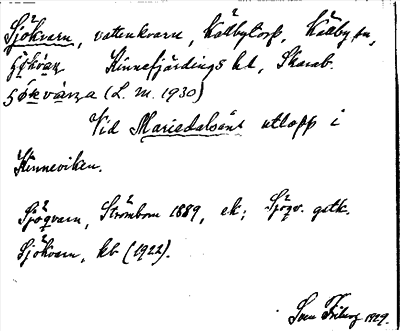 Sjökvarn, vattenkvarn, Källbytorp, Källby sn,
Kinnefjärdings hd, Skarab.
(L. M. 1930)
Vid Mariedalsåns utlopp i
Kinneviken.
Sjöqvarn, Strömbom 1889, ek; Sjöqv. gstk.
Sjökvarn, kb (1922).
Sven Friberg 1929.